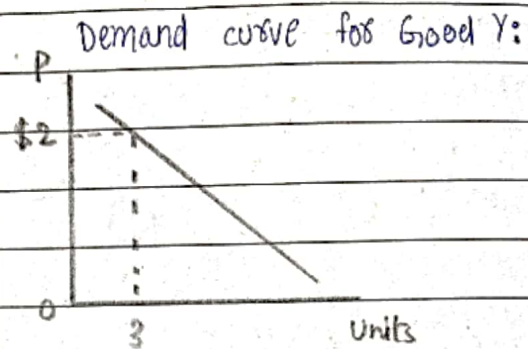 Demand curve for Good Y:
P
$2
0
3
Units